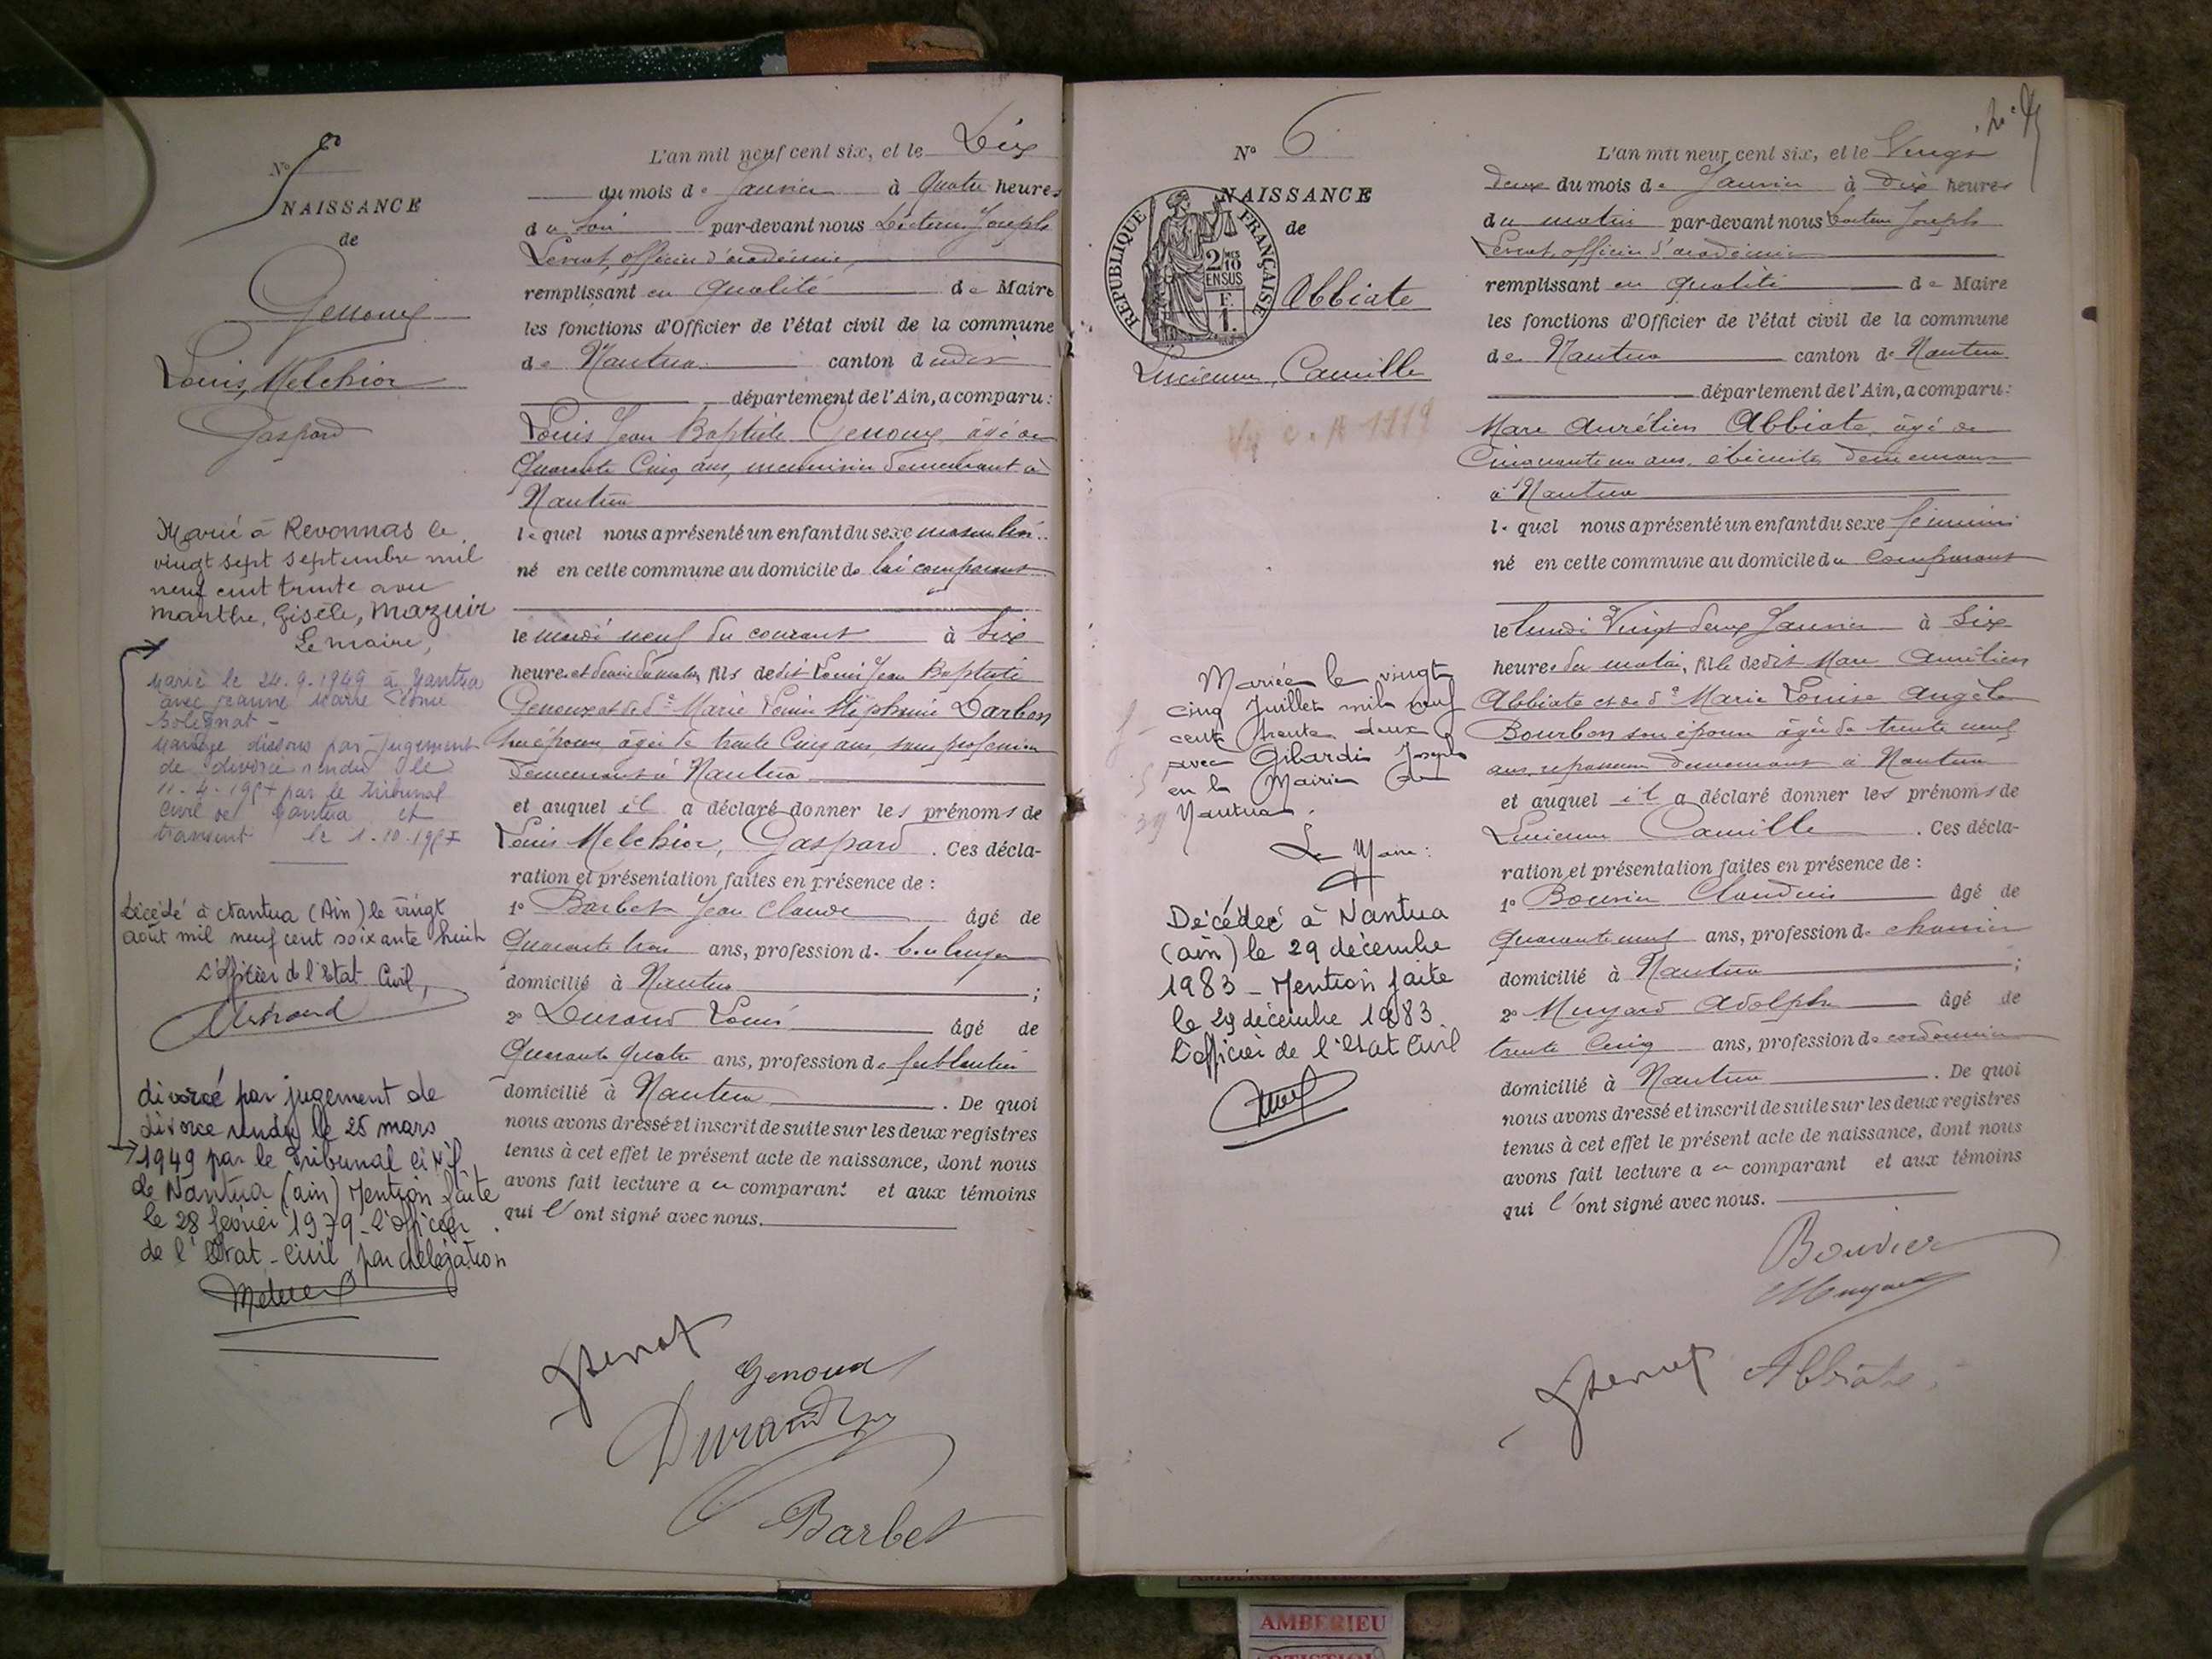 N° 5
NAISSANCE
de
Genoux
Louis, Melchior
Gaspard
Marié à Revonnas le
vingt sept septembre mil
neuf cent trente avec
Marthe, Gisèle, Mazuir
Le maire,
Marié le 24.9.1949 à Nantua
avec Jeanne Marie
Mariage dissous par Jugement
de divorce rendu le
par le tribunal
civil de Nantua et
transcrit le 1.10.1957
Décédé à Nantua (Ain) le vingt
août mil neuf cent soixante huit
L'Officier de l'Etat Civil,
divorcé par jugement de
divorce rendu le 25 mars
1949 par le Tribunal Civil
de Nantua (ain) Mention faite
le 28 février 1979 - l'officier
de l'Etat-Civil par délégation
L'an mil neuf cent six, et le Dix
du mois de Janvier à Quatre heures
du Soir par-devant nous Docteur Joseph
Levrat, officier d'académie,
remplissant en qualité de Maire
les fonctions d'Officier de l'état civil de la commune
de Nantua canton dudit
département de l'Ain, a comparu:
Louis Jean Baptiste Genoux, âgé de
Quarante Cinq ans, menuisier demeurant à
Nantua
lequel nous a présenté un enfant du sexe masculin
né en cette commune au domicile de lui comparant
le mardi neuf du courant à Six
heures et demie du matin, fils dedit Louis Jean Baptiste
Genoux et de De Marie Louise Stéphanie Darbon
son épouse âgée de trente Cinq ans, sans profession
demeurant à Nantua
et auquel il a déclaré donner les prénoms de
Louis Melchior, Gaspard. Ces décla-
ration et présentation faites en présence de :
1° Barbet Jean Claude âgé de
Quarante trois ans, profession de boulanger
domicilié à Nantua ;
2° Durand Louis âgé de
Quarante quatre ans, profession de ferblantier
domicilié à Nantua. De quoi
nous avons dressé et inscrit de suite sur les deux registres
tenus à cet effet le présent acte de naissance, dont nous
avons fait lecture au comparant et aux témoins
qui l'ont signé avec nous.
Genoux
Durand
Barbet
N° 6
NAISSANCE
de
RÉPUBLIQUE FRANÇAISE
2/10
EN SUS
F.
1.
Abbiate
Lucienne, Camille
Mariée le vingt
cinq Juillet mil neuf
cent trente deux
avec Gilardi Joseph
en la Mairie de
Nantua.
Le Maire:
Décédée à Nantua
(ain) le 29 décembre
1983 - Mention faite
le 29 décembre 1983
L'officier de l'Etat Civil
L'an mil neuf cent six, et le Vingt
deux du mois de Janvier à Dix heures
du matin par-devant nous Docteur Joseph
Levrat, officier d'académie
remplissant en qualité de Maire
les fonctions d'Officier de l'état civil de la commune
de Nantua canton de Nantua
département de l'Ain, a comparu:
Marc Aurélien Abbiate, âgé de
Cinquante un ans, ébéniste demeurant
à Nantua
lequel nous a présenté un enfant du sexe féminin
né en cette commune au domicile du comparant
le lundi Vingt deux Janvier à Six
heures du matin, fille dedit Marc Aurélien
Abbiate et de De Marie Louise Angèle
Bourbon son épouse âgée de trente neuf
ans, repasseuse demeurant à Nantua
et auquel il a déclaré donner les prénoms de
Lucienne Camille. Ces décla-
ration et présentation faites en présence de :
1° Bouvier Claudius âgé de
quarante neuf ans, profession de
domicilié à Nantua ;
2° Muyard Adolphe âgé de
trente Cinq ans, profession de cordonnier
domicilié à Nantua. De quoi
nous avons dressé et inscrit de suite sur les deux registres
tenus à cet effet le présent acte de naissance, dont nous
avons fait lecture au comparant et aux témoins
qui l'ont signé avec nous.
Bouvier
Muyard
Abbiate
AMBERIEU